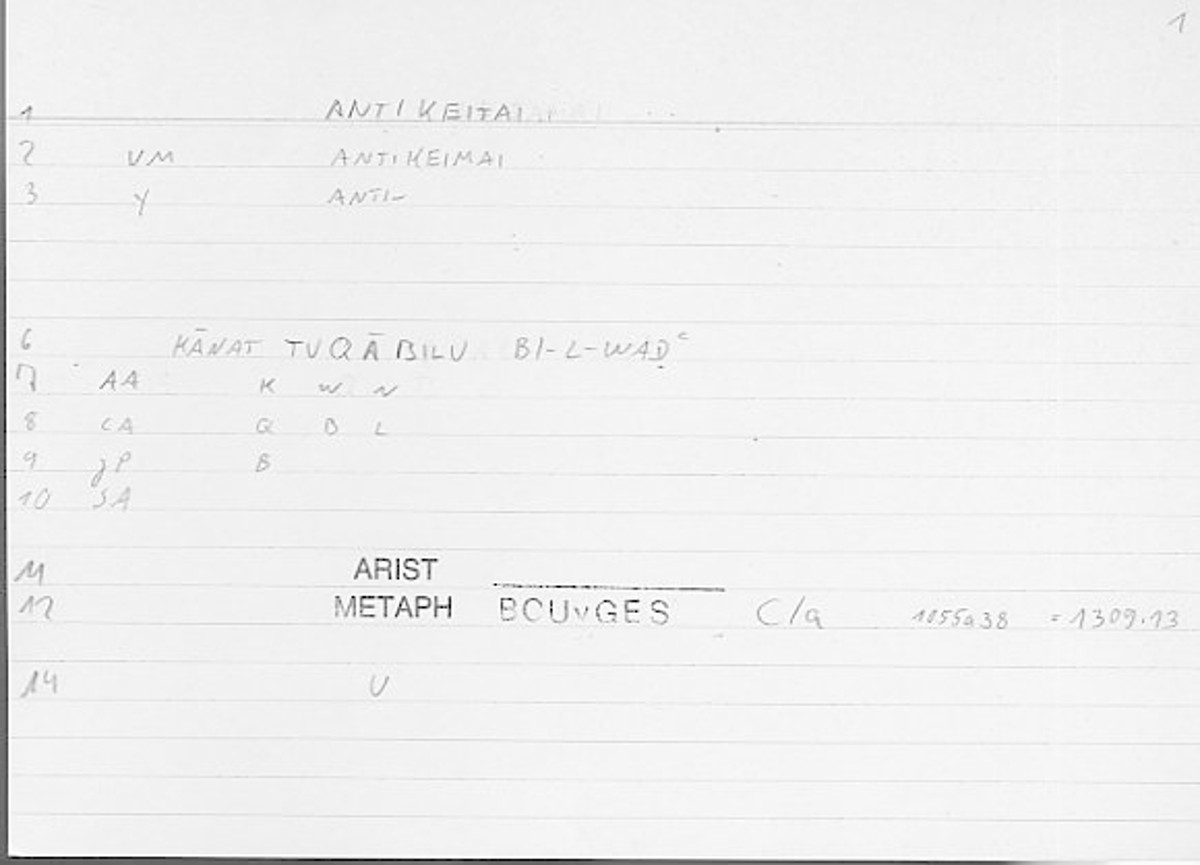 1
1 ANTIKEITAI
2 VM ANTIKEIMAI
3 Y ANTI-
6 KĀNAT TUQĀBILU BI-L-WAḌʿ
7 AA K W N
8 CA Q B L
9 gP B
10 SA
11 ARIST
12 METAPH BOUYGES C/a 1055a38 = 1309.13
14 U